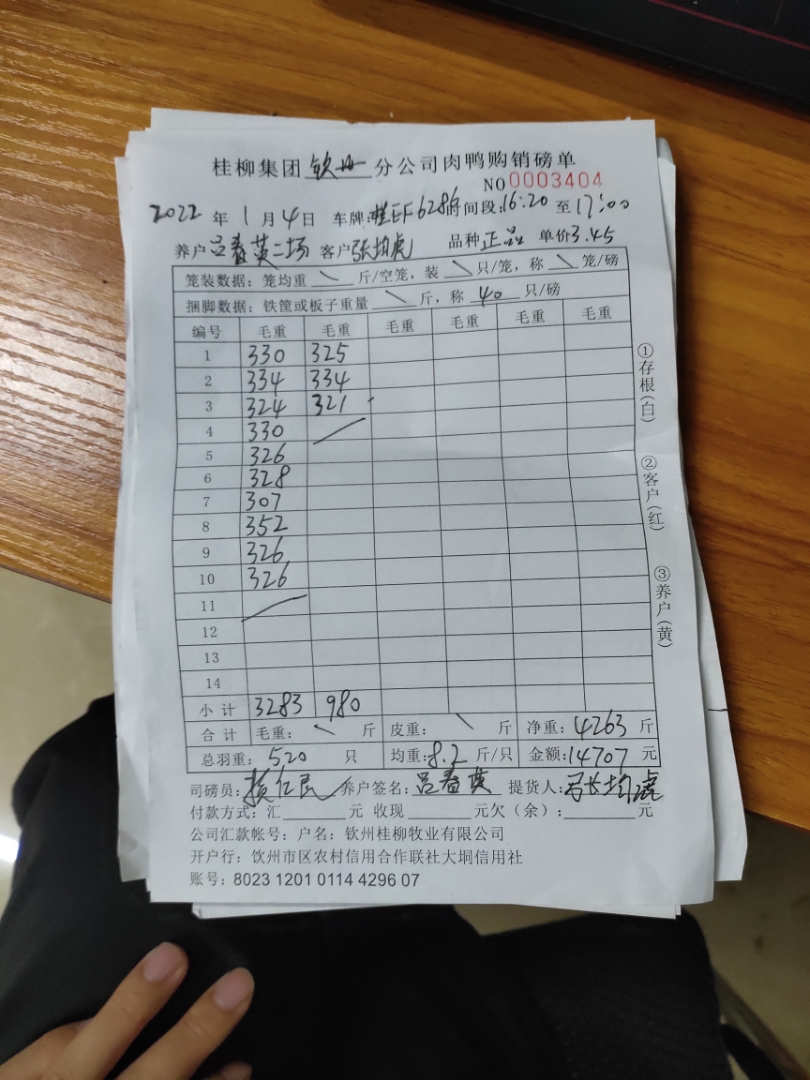 桂柳集团 钦州 分公司肉鸭购销磅单
NO 0003404
2022 年 1 月 4 日 车牌:桂EF6286 时间段:16:20 至 17:00
养户 吕春英二场 客户 张均虎 品种 正品 单价 3.45
笼装数据：笼均重 \ 斤/空笼，装 \ 只/笼，称 \ 笼/磅
捆脚数据：铁筐或板子重量 \ 斤，称 40 只/磅
编号 毛重 毛重 毛重 毛重 毛重 毛重
1 330 325
2 334 334
3 324 321
4 330 /
5 326
6 328
7 307
8 352
9 326
10 326
11 /
12
13
14
小计 3283 980
合计 毛重: \ 斤 皮重: \ 斤 净重: 4263 斤
总羽重: 520 只 均重: 8.2 斤/只 金额: 14707 元
司磅员: 养户签名: 吕春英 提货人: 张均虎
付款方式: 汇 元 收现 元欠（余）: 元
公司汇款帐号：户名：钦州桂柳牧业有限公司
开户行：钦州市区农村信用合作联社大垌信用社
账号：8023 1201 0114 4296 07
①存根(白)
②客户(红)
③养户(黄)